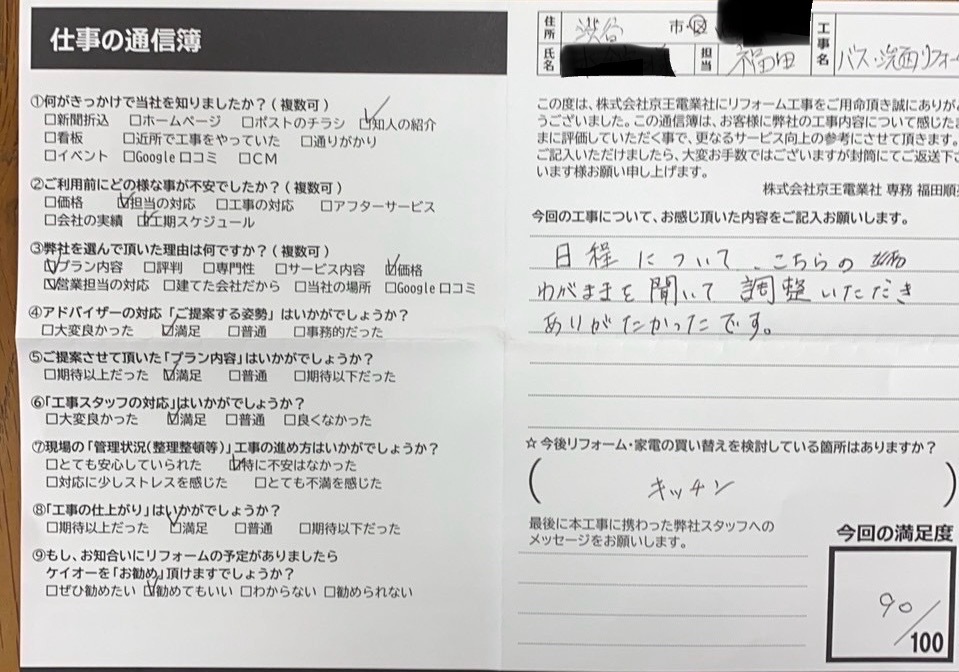 仕事の通信簿
①何がきっかけで当社を知りましたか?(複数可)
□新聞折込 □ホームページ □ポストのチラシ ☑知人の紹介
□看板 □近所で工事をやっていた □通りがかり
□イベント □Google口コミ □CM
②ご利用前にどの様な事が不安でしたか?(複数可)
□価格 ☑担当の対応 □工事の対応 □アフターサービス
□会社の実績 ☑工期スケジュール
③弊社を選んで頂いた理由は何ですか?(複数可)
☑プラン内容 □評判 □専門性 □サービス内容 ☑価格
☑営業担当の対応 □建てた会社だから □当社の場所 □Google口コミ
④アドバイザーの対応「ご提案する姿勢」はいかがでしょうか?
□大変良かった ☑満足 □普通 □事務的だった
⑤ご提案させて頂いた「プラン内容」はいかがでしょうか?
□期待以上だった ☑満足 □普通 □期待以下だった
⑥「工事スタッフの対応」はいかがでしょうか?
□大変良かった ☑満足 □普通 □良くなかった
⑦現場の「管理状況(整理整頓等)」工事の進め方はいかがでしょうか?
□とても安心していられた ☑特に不安はなかった
□対応に少しストレスを感じた □とても不満を感じた
⑧「工事の仕上がり」はいかがでしょうか?
□期待以上だった ☑満足 □普通 □期待以下だった
⑨もし、お知合いにリフォームの予定がありましたら
ケイオーを「お勧め」頂けますでしょうか?
□ぜひ勧めたい ☑勧めてもいい □わからない □勧められない
住所 渋谷 市・区
氏名 担当 福田 工事名 バス・洗面リフォー
この度は、株式会社京王電業社にリフォーム工事をご用命頂き誠にありがと
うございました。この通信簿は、お客様に弊社の工事内容について感じたま
まに評価していただく事で、更なるサービス向上の参考にさせて頂きます。
ご記入いただけましたら、大変お手数ではございますが封筒にてご返送下さ
います様お願い申し上げます。
株式会社京王電業社 専務 福田順
今回の工事について、お感じ頂いた内容をご記入お願いします。
日程について、こちらの
わがままを聞いて調整いただき
ありがたかったです。
☆今後リフォーム・家電の買い替えを検討している箇所はありますか?
(キッチン)
最後に本工事に携わった弊社スタッフへの
メッセージをお願いします。
今回の満足度
90/100